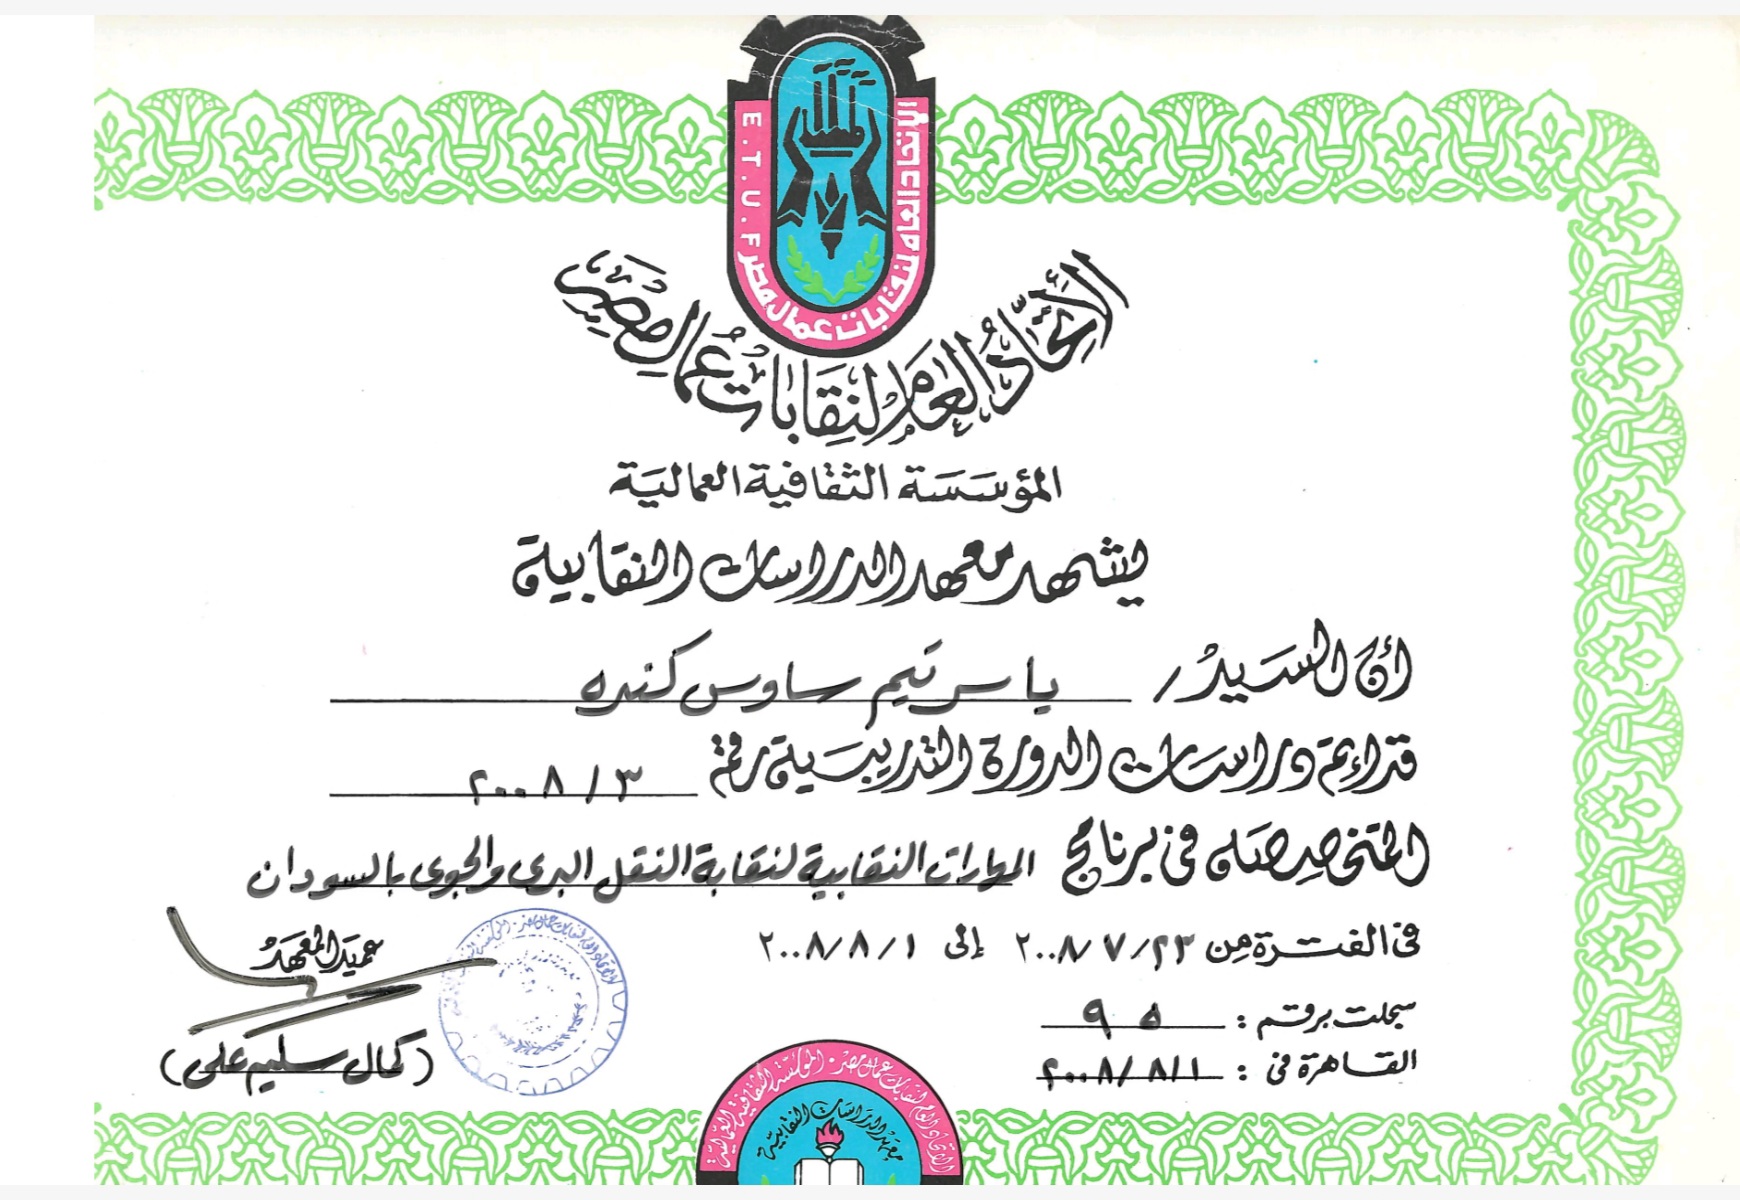 E.T.U.F الاتحاد العام لنقابات عمال مصر
الاتحاد العام لنقابات عمال مصر
المؤسسة الثقافية العمالية
يشهد معهد الدراسات النقابية
أن السيد / ياسر تيم ساوس كنده
قد أتم دراسات الدورة التدريبية رقم ٣ / ٢٠٠٨
المتخصصة في برنامج المهارات النقابية لنقابة النقل البرى والجوى بالسودان
فى الفترة من ٢٣ / ٧ / ٢٠٠٨ إلى ١ / ٨ / ٢٠٠٨
سجلت برقم : ٩٥
القاهرة فى : ١ / ٨ / ٢٠٠٨
عميد المعهد
(كمال سليم على)
الاتحاد العام لنقابات عمال مصر - المؤسسة الثقافية العمالية
معهد الدراسات النقابية